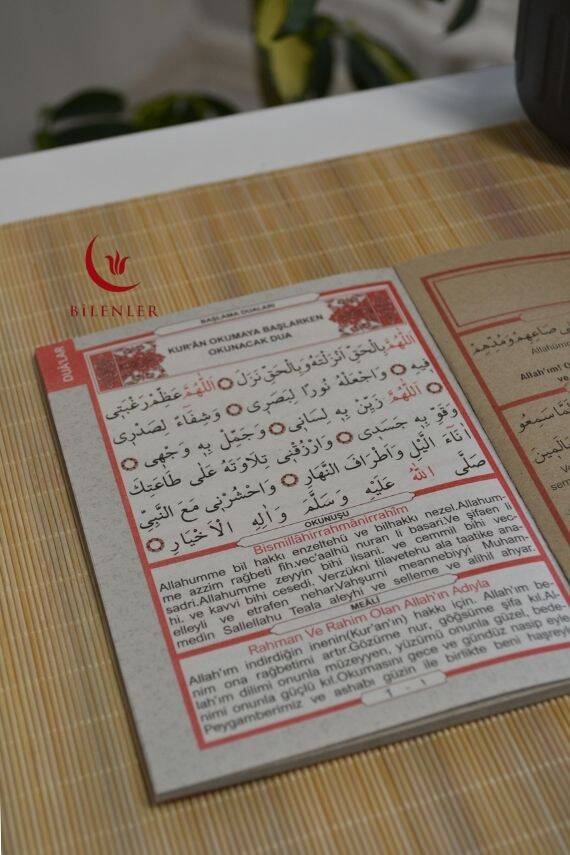 BİLENLER
DUALAR
BAŞLAMA DUALARI
KUR'ÂN OKUMAYA BAŞLARKEN
OKUNACAK DUA
اَللّٰهُمَّ بِالْحَقِّ اَنْزَلْتَهُ وَبِالْحَقِّ نَزَلَ اَللّٰهُمَّ عَظِّمْ رَغْبَتِى
فِيهِ وَاجْعَلْهُ نُورًا لِبَصَرِى وَشِفَاءً لِصَدْرِى
اَللّٰهُمَّ زَيِّنْ بِهِ لِسَانِى وَجَمِّلْ بِهِ وَجْهِى
وَقَوِّ بِهِ جَسَدِى وَارْزُقْنِى تِلَاوَتَهُ عَلٰى طَاعَتِكَ
اٰنَاءَ الَّيْلِ وَاَطْرَافَ النَّهَارِ وَاحْشُرْنِى مَعَ النَّبِيِّ
صَلَّى اللّٰهُ عَلَيْهِ وَسَلَّمَ وَاٰلِهِ الْاَخْيَارِ
OKUNUŞU
Bismillâhirrahmânirrahîm
Allahumme bil hakkı enzeltehü ve bilhakkı nezel.Allahum-
me azzim rağbetî fih.vec'aalhü nuran li basari.Ve şifaen li
sadri.Allahumme zeyyin bihi lisani. ve cemmil bihi vec-
hi. ve kavvi bihi cesedi. Verzükni tilavetehu ala taatike ana-
elleyli ve etrafen nehar.Vahşurni meannebiyyi Muham-
medin Sallellahu Teala aleyhi ve selleme ve alihil ahyar.
MEÂLİ
Rahman Ve Rahim Olan Allah'ın Adıyla
Allah'ım indirdiğin inenin(Kur'an'ın) hakkı için. Allah'ım be-
nim ona rağbetimi artır.Gözüme nur, göğsüme şifa kıl.Al-
lah'ım dilimi onunla müzeyyen, yüzümü onunla güzel, bede-
nimi onunla güçlü kıl.Okumasını gece ve gündüz nasip eyle
Peygamberimiz ve ashabı güzin ile birlikte beni haşreyle
1 - 1
صَاعِهِمْ وَمُدِّهِمْ
Allahüm
Allah'ım!
ve